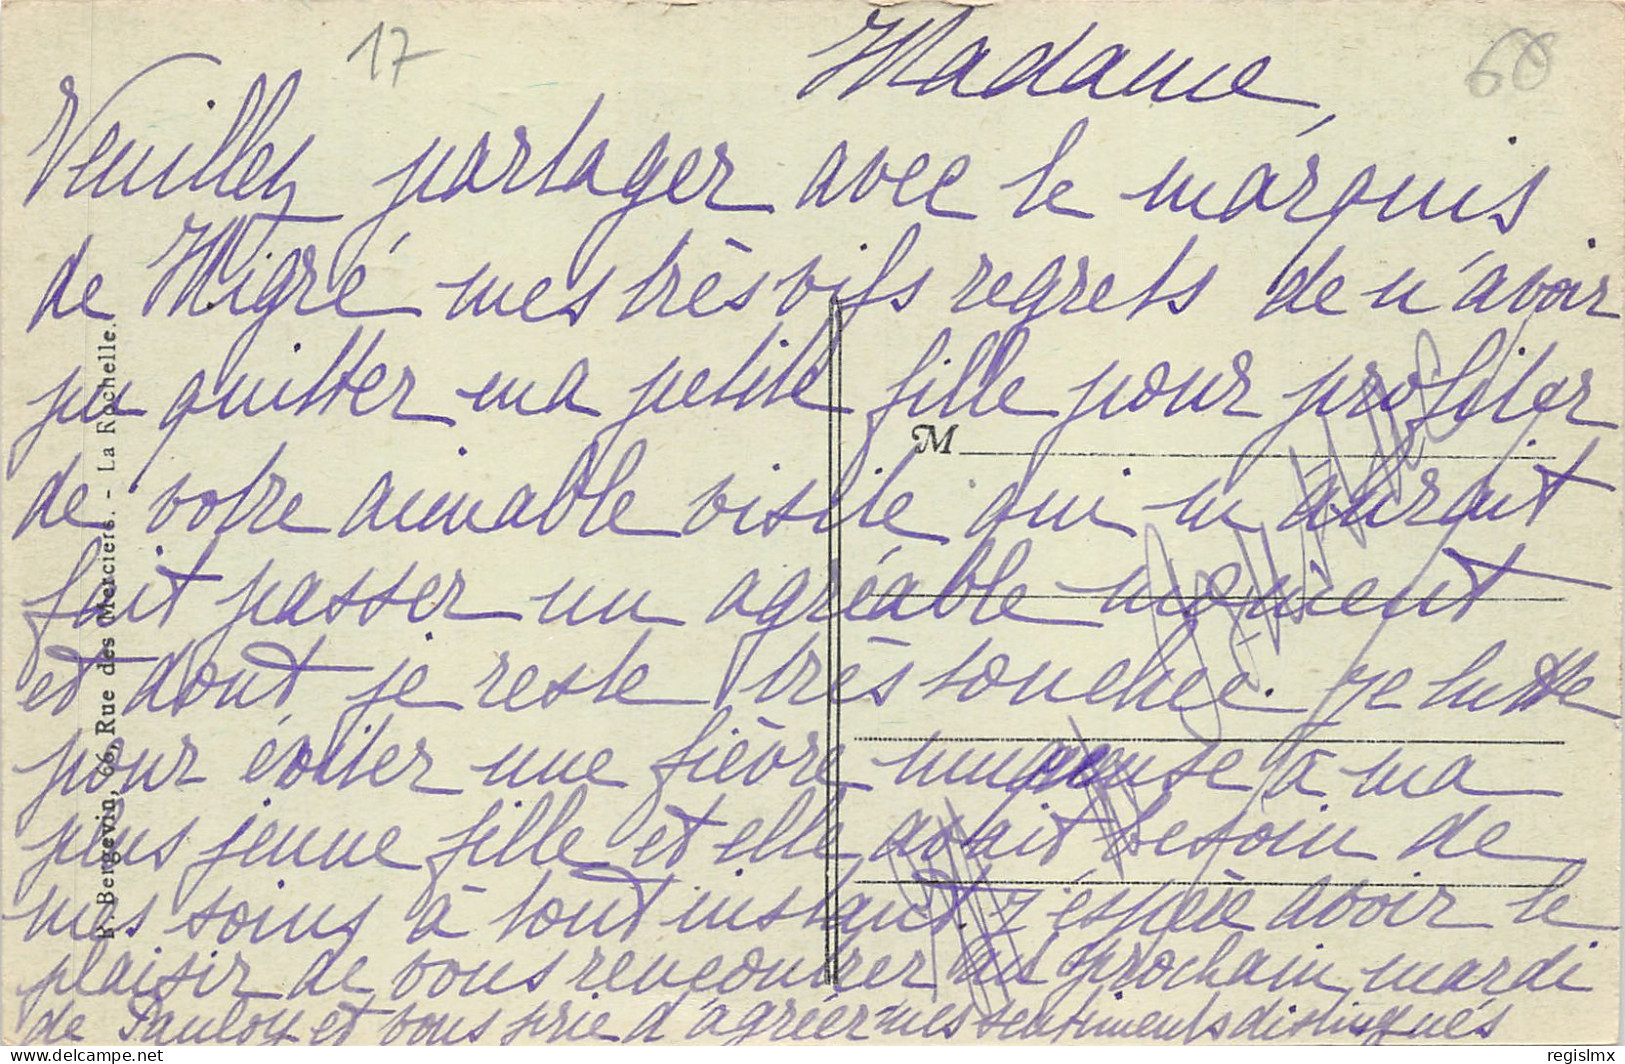 17
60
Madame,
Veuillez partager avec le marquis
de Migré mes très vifs regrets de n'avoir
pu quitter ma petite fille pour profiter
de votre aimable visite qui m'aurait
fait passer un agréable moment
et dont je reste très touchée. Je lutte
pour éviter une fièvre muqueuse à ma
plus jeune fille et elle avait besoin de
mes soins à tout instant. J'espère avoir le
plaisir de vous rencontrer au prochain mardi
de et vous prie d'agréer mes sentiments distingués
M
R. Bergevin, 66, Rue des Merciers. - La Rochelle.
delcampe.net
regislmx